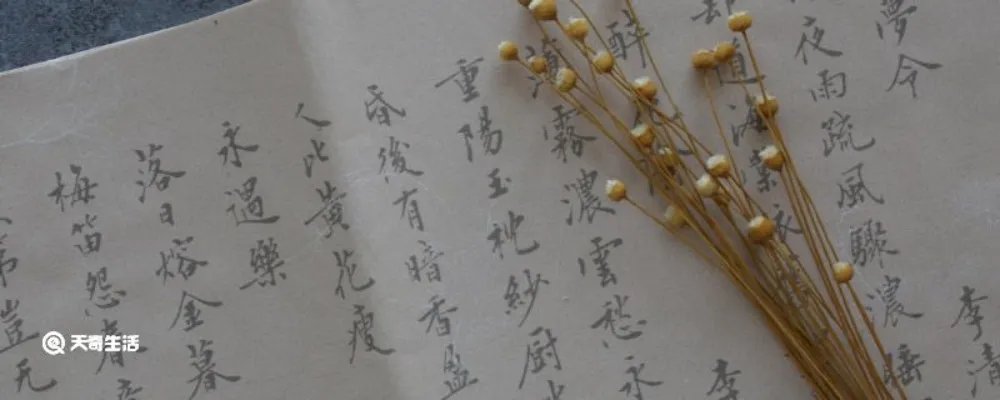 夢令 李清
夜雨疏風驟濃睡
道海棠依
醉花陰 李
薄霧濃雲愁永
重陽玉枕紗厨
昏後有暗香盈
人比黃花瘦
永遇樂
落日熔金暮
梅笛怨春意
第豈无
天奇生活